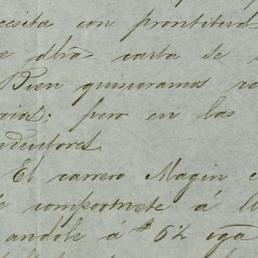 cesita con prontitud
e dhra carta se
Bien quisieramos
cios; pero en las
ndeutores.
El carrero Magin
compromete á
andole á $ 6½